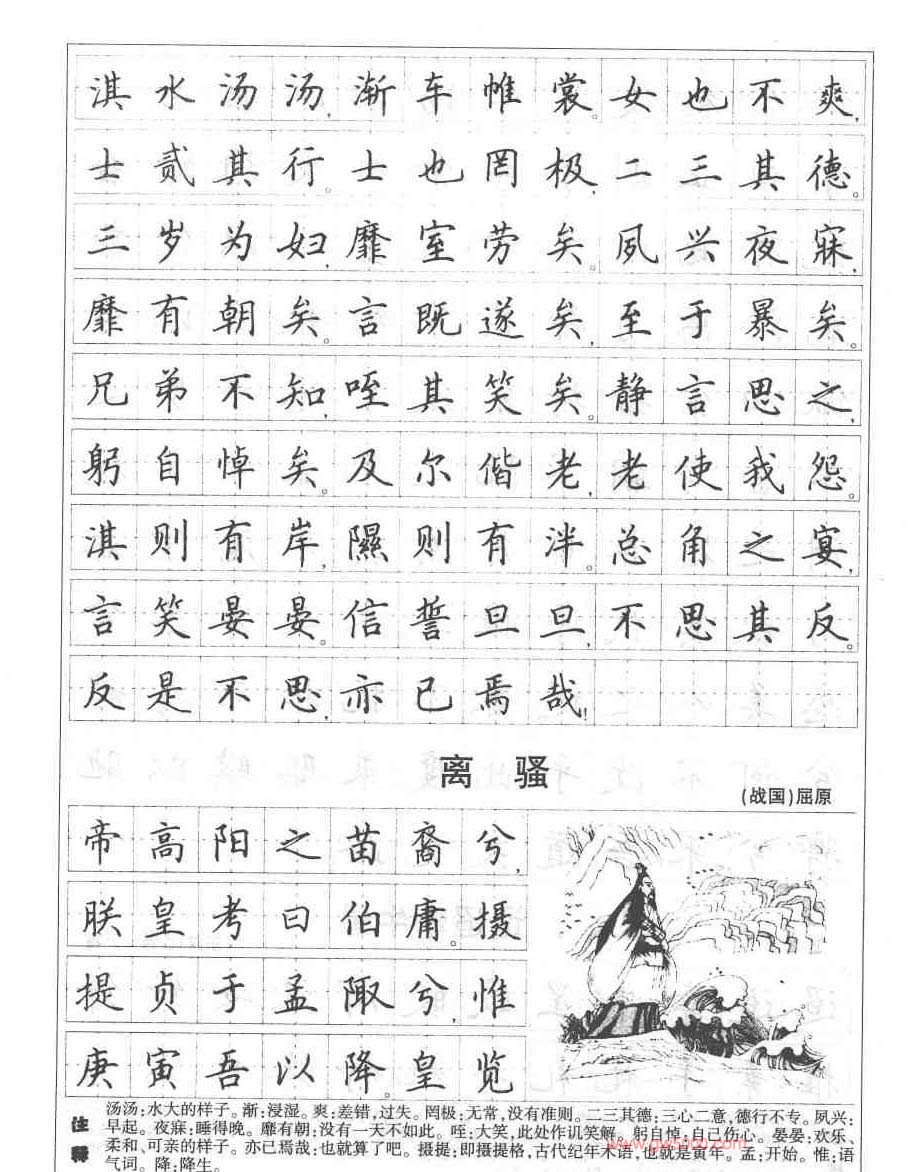 淇水汤汤,渐车帷裳。女也不爽,
士贰其行。士也罔极,二三其德。
三岁为妇,靡室劳矣。夙兴夜寐,
靡有朝矣。言既遂矣,至于暴矣。
兄弟不知,咥其笑矣。静言思之,
躬自悼矣。及尔偕老,老使我怨。
淇则有岸,隰则有泮。总角之宴,
言笑晏晏。信誓旦旦,不思其反。
反是不思,亦已焉哉!
离骚
(战国)屈原
帝高阳之苗裔兮,
朕皇考曰伯庸。摄
提贞于孟陬兮,惟
庚寅吾以降。皇览
注释
汤汤:水大的样子。渐:浸湿。爽:差错,过失。罔极:无常,没有准则。二三其德:三心二意,德行不专。夙兴:
早起。夜寐:睡得晚。靡有朝:没有一天不如此。咥:大笑,此处作讥笑解。躬自悼:自己伤心。晏晏:欢乐、
柔和、可亲的样子。亦已焉哉:也就算了吧。摄提:即摄提格,古代纪年术语,也就是寅年。孟:开始。惟:语
气词。降:降生。
www.gw5000.com